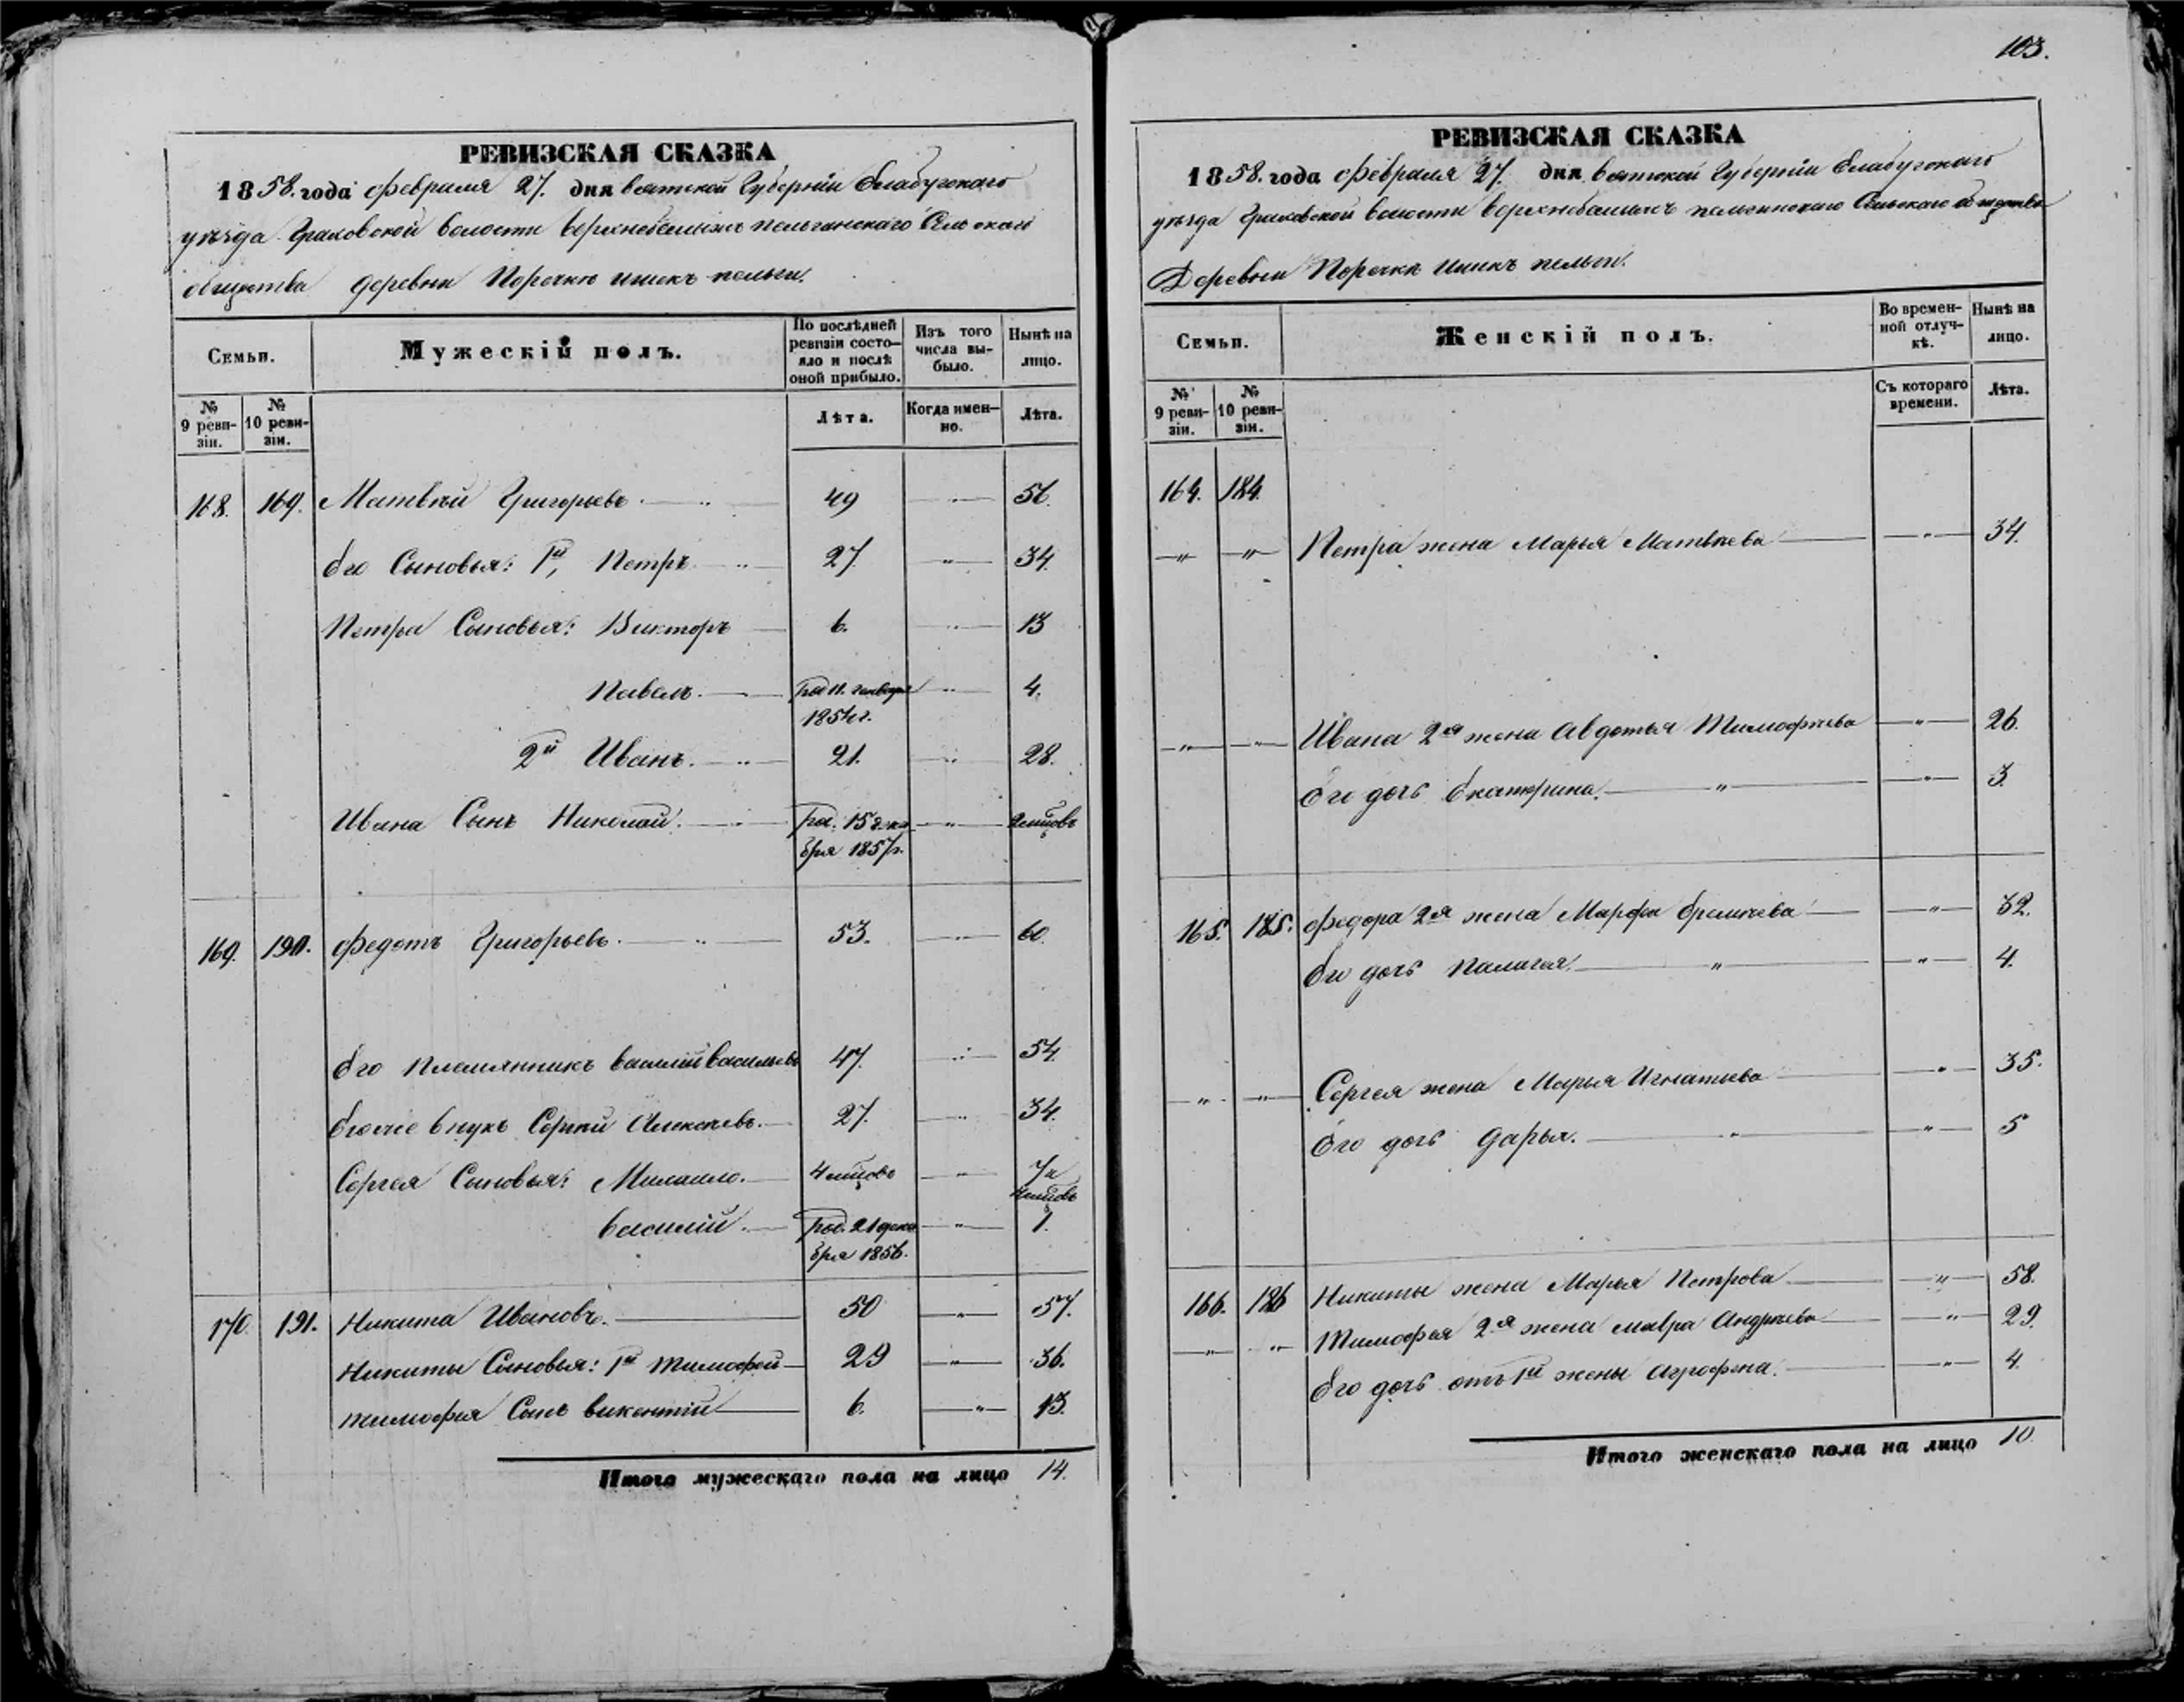 103.
РЕВИЗСКАЯ СКАЗКА
1858. года февраля 27. дня вятской Губерніи Елабугскаго
уѣзда Граховской волости пельгинскаго Сельскаго
общества деревни Поречки пельги.
Семьи.
Мужескій полъ.
По послѣдней ревизіи состояло и послѣ оной прибыло.
Изъ того числа выбыло.
Нынѣ на лицо.
№ 9 ревизіи.
№ 10 ревизіи.
Лѣта.
Когда именно.
Лѣта.
168. 169. Матвѣй Григорьевъ. 49 56.
Его Сыновья: 1й, Петръ. 27. 34.
Петра Сыновья: Викторъ 6. 13
Павелъ. род 11. генваря 4.
1854 г.
2й Иванъ. 21. 28.
Ивана Сынъ Николай. род. 15 дека 2 мѣсцовъ
бря 1857 г.
169. 190. Федотъ Григорьевъ. 53. 60.
Его племянникъ Василій Васильевъ 47. 54.
Его же внукъ Сергѣй Алексѣевъ. 27. 34.
Сергея Сыновья: Михаило. 4 мѣсцовъ 7 и
4 мѣсцовъ
Василій. род. 21 дека 1.
бря 1856.
170. 191. Никита Ивановъ. 50 57.
Никиты Сыновья: 1й Тимофей 29 36.
Тимофея Сынъ Викентій 6. 13.
Итого мужескаго пола на лицо 14.
РЕВИЗСКАЯ СКАЗКА
1858. года февраля 27. дня вятской Губерніи Елабугскаго
уѣзда Граховской волости пельгинскаго Сельскаго общества
Деревни Поречки пельги.
Семьи.
Женскій полъ.
Во временной отлучкѣ.
Нынѣ на лицо.
№ 9 ревизіи.
№ 10 ревизіи.
Съ котораго времени.
Лѣта.
164. 184.
" " Петра жена Марья Матвѣева " 34.
" " Ивана 2я жена Авдотья Тимофѣева " 26.
Его дочь Екатерина. " " 3.
165. 185. Федора 2я жена Марфа Еремѣева " 32.
Его дочь Палагея. " " 4.
" " Сергея жена Марья Игнатьева " 35.
Его дочь Дарья. " " 5
166. 186 Никиты жена Марья Петрова " 58.
" " Тимофея 2я жена Мавра Андрѣева " 29.
Его дочь отъ 1й жены Агрофена. " 4.
Итого женскаго пола на лицо 10.